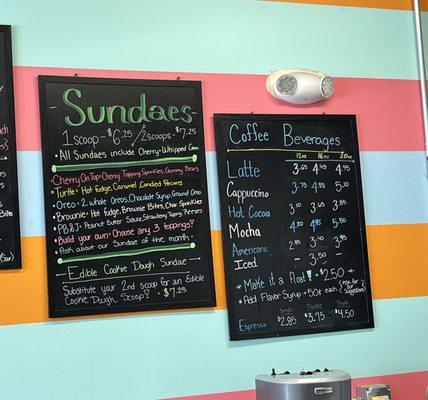 Sundaes
1 scoop - $6.25 / 2 scoops - $7.25
• All Sundaes include Cherry + Whipped Cream
• Cherry On Top: Cherry Topping, Sprinkles, Gummy Bears
• Turtle: Hot fudge, Caramel, Candied Pecans
• Oreo: 2 whole Oreos, Chocolate Syrup, Ground Oreo
• Brownie: Hot fudge, Brownie Bites, Choc. Sprinkles
• PB&J: Peanut Butter Sauce, Strawberry Topping
• Build your own: Choose any 3 toppings!
• Ask about our Sundae of the month!
Edible Cookie Dough Sundae
Substitute your 2nd scoop for an Edible
Cookie Dough Scoop! - $7.25
Coffee Beverages
12oz 16oz 20oz
Latte 3.65 4.45 4.95
Cappuccino 3.75 4.55 5.10
Hot Cocoa 3.10 3.60 3.85
Mocha 4.20 4.95 5.50
Americano 2.95 3.40 3.85
Iced - 3.50 -
* Make it a Float! + $2.50 *
* Add Flavor Syrup + 50¢ each
Single Double Triple
Espresso $2.85 $3.75 $4.50